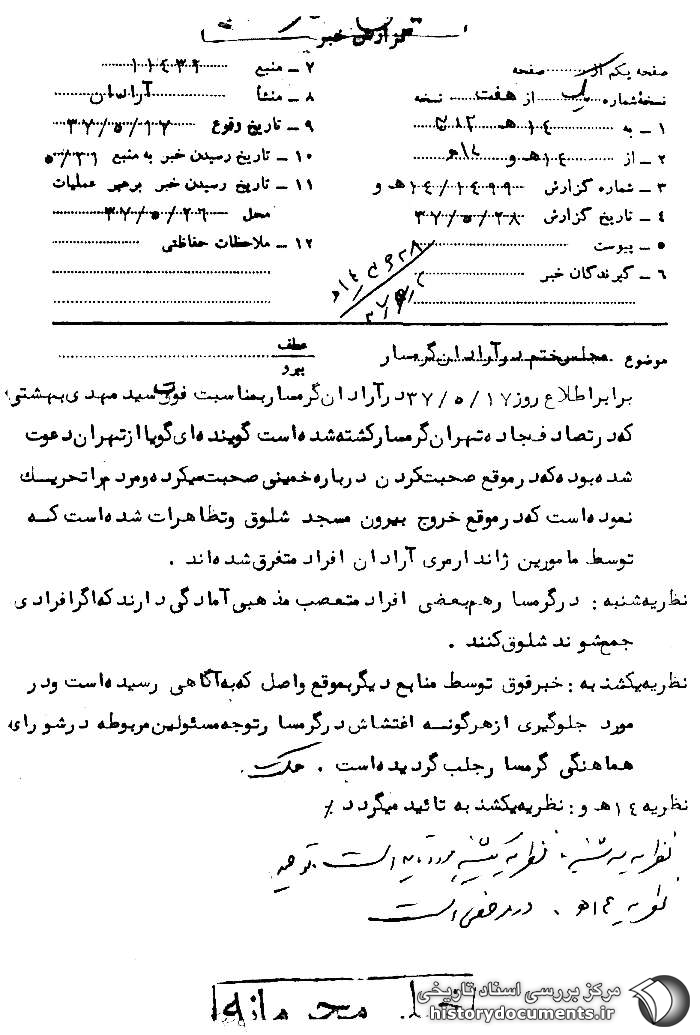 گزارش خبر
صفحه یکم از ........ صفحه
نسخه شماره یک از هفت نسخه
۱ ـ به ۱۴ هـ ۳۱۲
۲ ـ از ۱۴ هـ و
۳ ـ شماره گزارش ۱۴/۱۴۹۹ هـ و
۴ ـ تاریخ گزارش ۳۷/۵/۲۸
۵ ـ پیوست
۶ ـ گیرندگان خبر
۷ ـ منبع ۱۱۴۳۹
۸ ـ منشأ آرادان
۹ ـ تاریخ وقوع ۳۷/۵/۱۷
۱۰ ـ تاریخ رسیدن خبر به منبع ۵/۲۱
۱۱ ـ تاریخ رسیدن خبر برهبر عملیات
محل ۳۷/۵/۲۶
۱۲ ـ ملاحظات حفاظتی
موضوع مجلس ختم در آرادان گرمسار
عطف
پیرو
برابر اطلاع روز ۳۷/۵/۱۷ در آرادان گرمسار بمناسبت فوت سید مهدی بهشتی،
که در تصادف جاده تهران گرمسار کشته شده است گوینده ای گویا از تهران دعوت
شده بوده که در موقع صحبت کردن درباره خمینی صحبت میکرده و مردم را تحریک
نموده است که در موقع خروج بیرون مسجد شلوق وتظاهرات شده است کــه
توسط مامورین ژاندارمری آرادان افراد متفرق شده اند .
نظریه شنبه : در گرمسار هم بعضی افراد متعصب مذهبی آمادگی دارند که اگر افرادی
جمع شوند شلوق کنند .
نظریه یکشنبه : خبر فوق توسط منابع دیگر بموقع واصل که به آگاهی رسیده است ودر
مورد جلوگیری از هرگونــه اغتشاش در گرمسار توجه مسئولین مربوطه در شورای،
هماهنگی گرمسار جلب گردیده است .
نظریه ۱۴ هـ و : نظریه یکشنبه تائید میگردد ٪
نظریه سه شنبه : نظریه یکشنبه مورد تأیید است .
نظریه ۱۴ هـ . در مرخصی است
خیلی محرمانه
مرکز بررسی اسناد تاریخی
historydocuments.ir